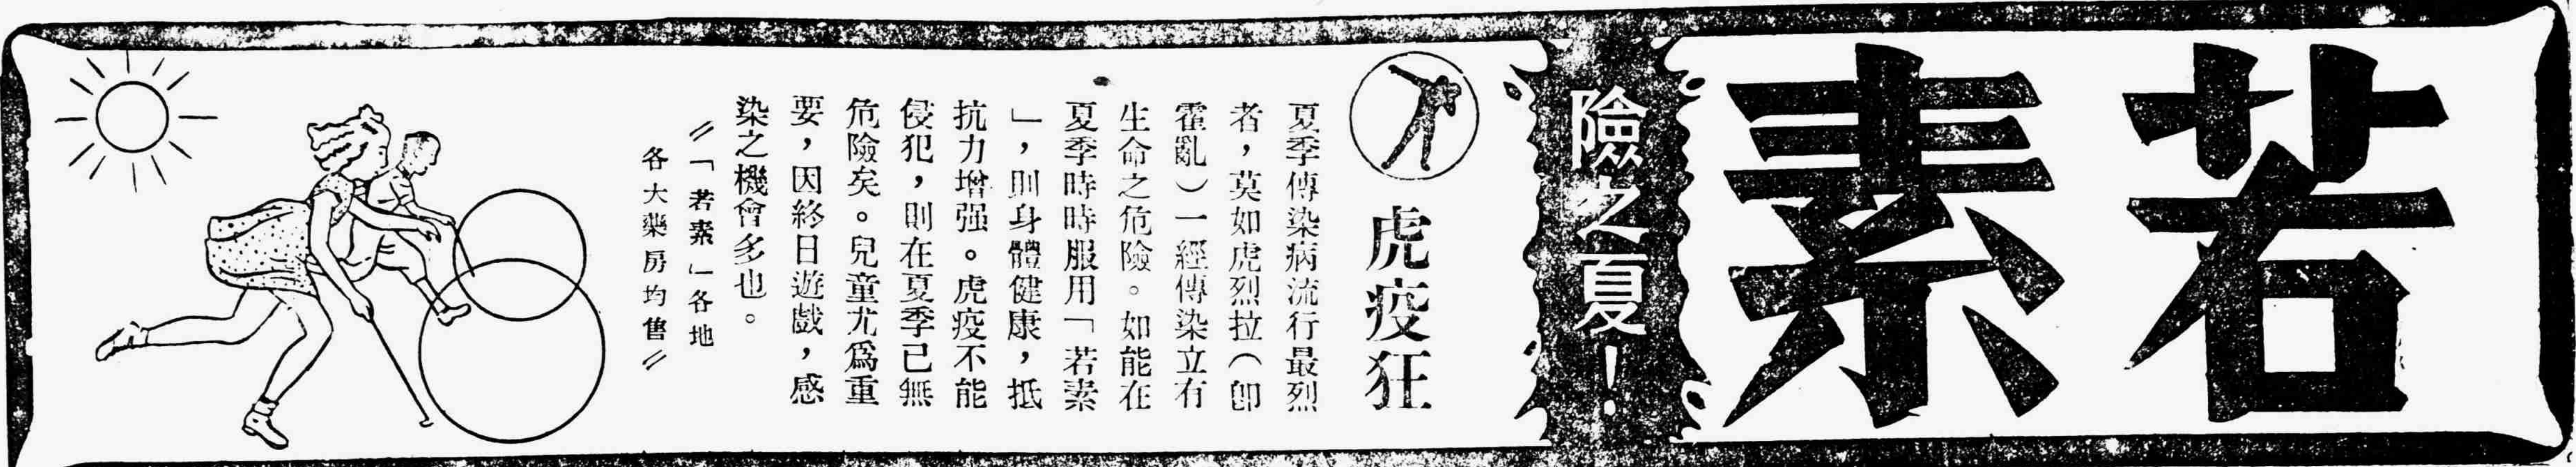 若素
險之夏！
虎疫狂
夏季傳染病流行最烈
者，莫如虎烈拉（卽
霍亂）一經傳染立有
生命之危險。如能在
夏季時時服用「若素
」，則身體健康，抵
抗力增强。虎疫不能
侵犯，則在夏季已無
危險矣。兒童尤爲重
要，因終日遊戲，感
染之機會多也。
〃「若素」各地
各大藥房均售〃